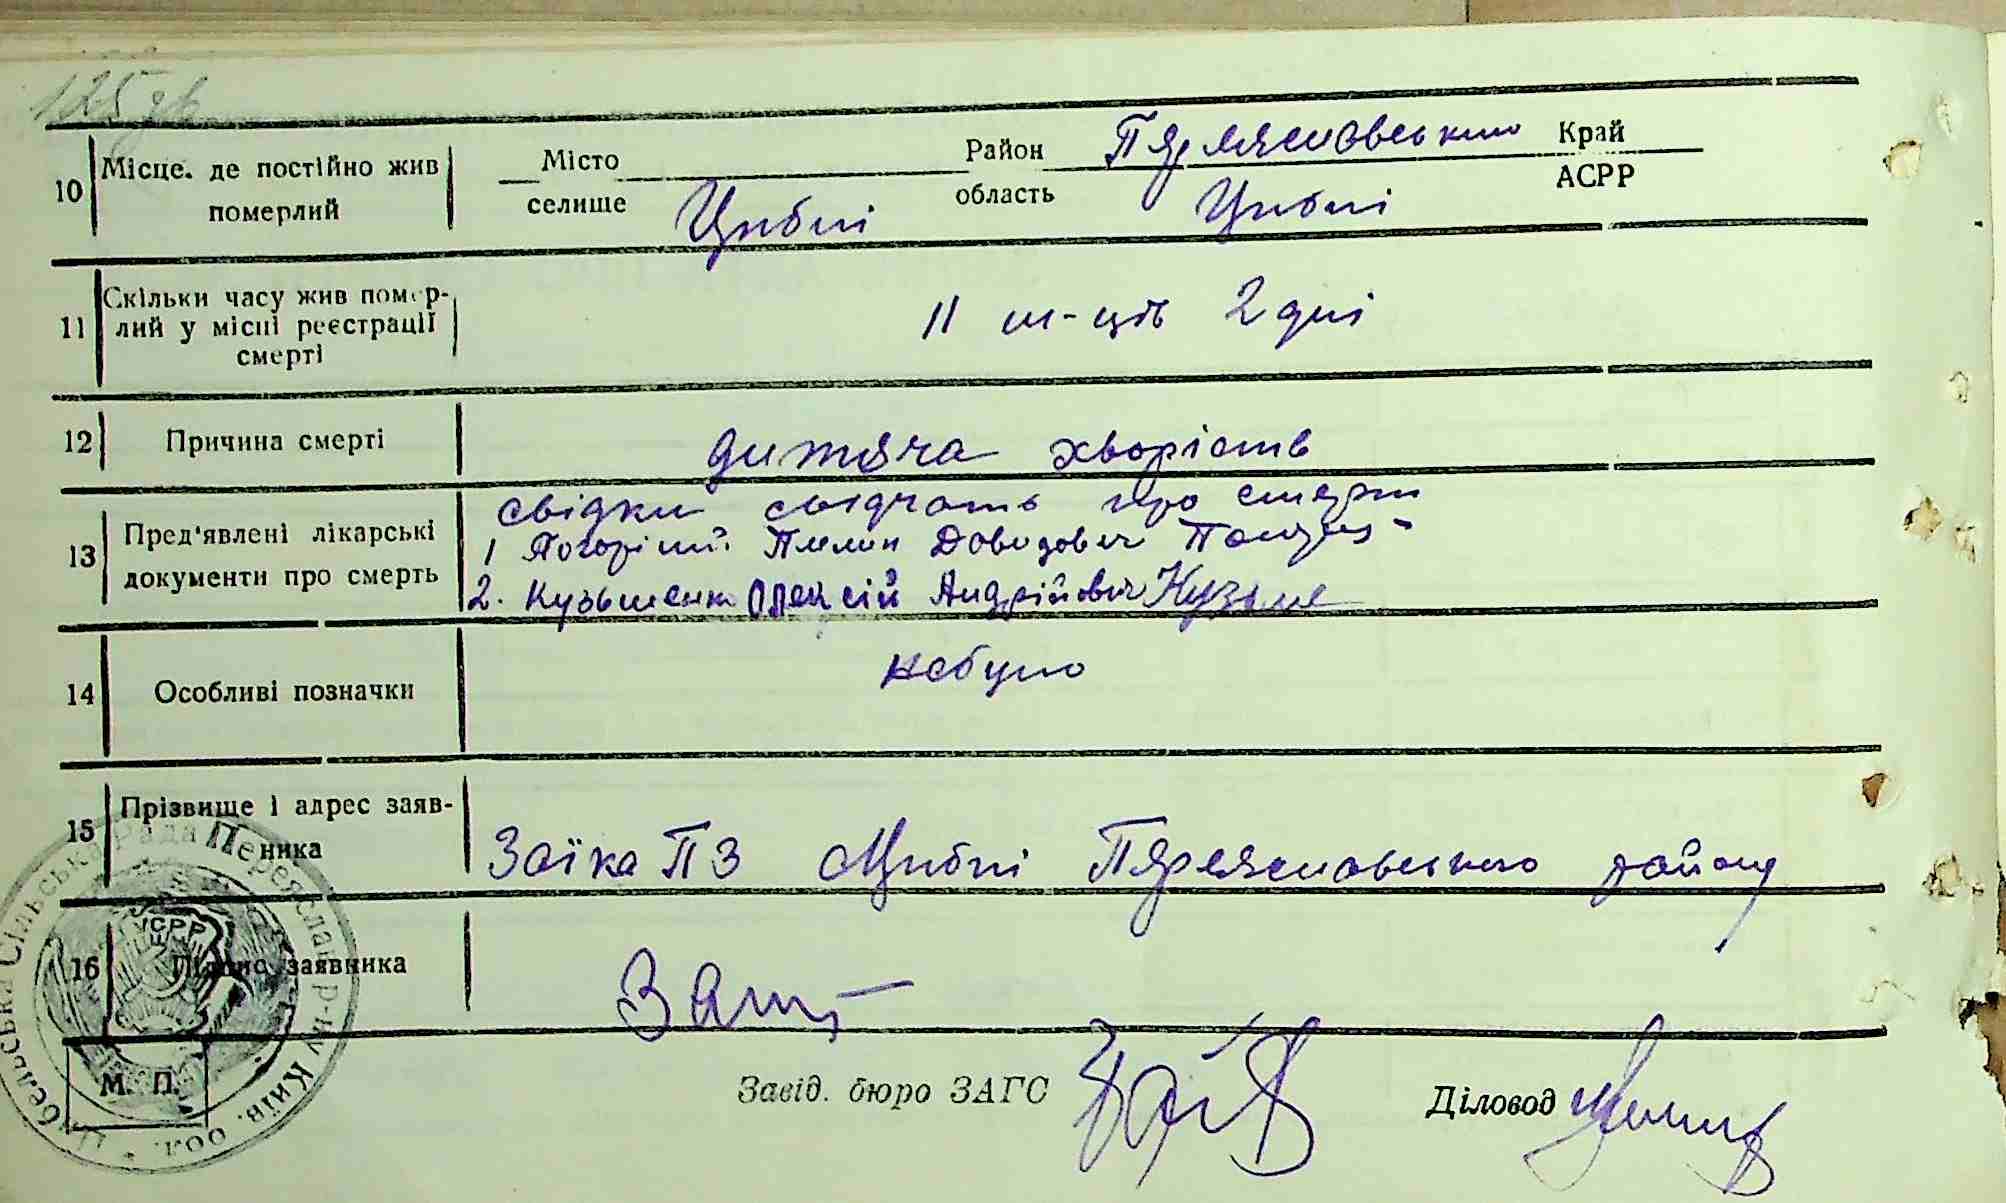 125 зв
10 Місце, де постійно жив померлий
Місто селище Циблі Район область Пяреяславського Циблі Край АСРР
11 Скільки часу жив помер-
лий у місці реєстрації
смерті
11 м-ців 2 дні
12 Причина смерті дитяча хворість
13 Пред'явлені лікарські
документи про смерть
свідки свідчать про смерть
1 Погорілий Пилип Давидович
2. Кузьменко Олексій Андрійович Кузьме
14 Особливі позначки небуло
15 Прізвище і адрес заяв-
ника
Заїка П З Цибли Пяреяславського району
16 Підпис заявника
М. П.
Завід. бюро ЗАГС
Діловод
Цибельська Сільська Рада Переяслав р-ну Київ. обл.
УСРР